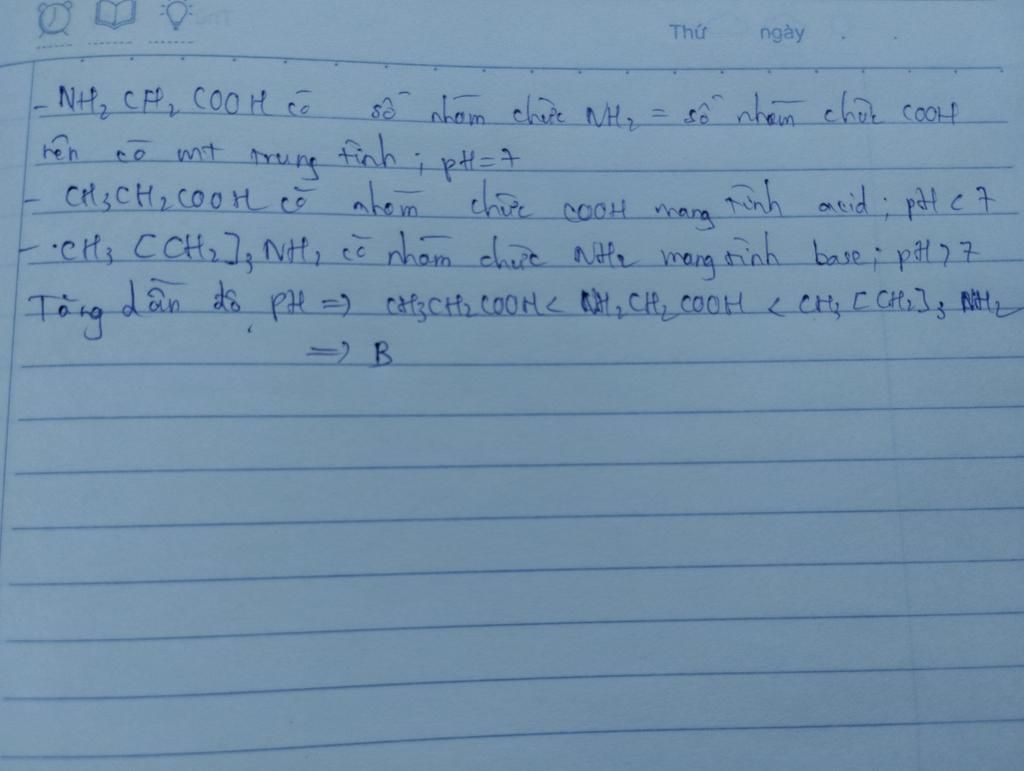 Thứ ngày . .
- NH₂ CH₂ COOH có số nhóm chức NH₂ = số nhóm chức COOH
nên có mt trung tính ; pH = 7
- CH₃CH₂COOH có nhóm chức COOH mang tính acid ; pH < 7
- ·CH₃ [CH₂]₃ NH₂ có nhóm chức NH₂ mang tính base ; pH > 7
Tăng dần độ pH => CH₃CH₂COOH < NH₂CH₂COOH < CH₃[CH₂]₃ NH₂
=> B